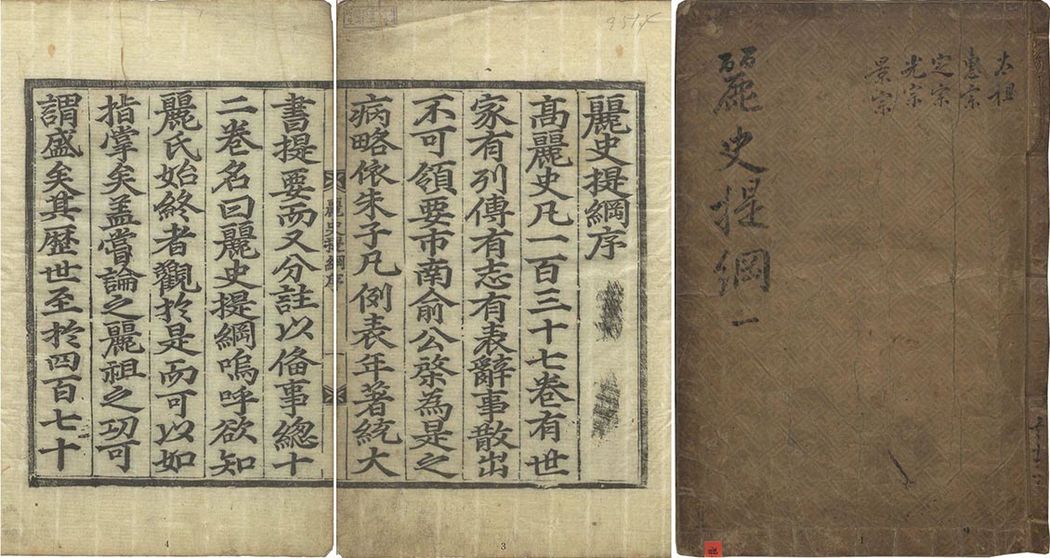 麗史提綱序
高麗史凡一百三十七卷有世
家有列傳有志有表辭事散出
不可領要市南俞公棨為是之
病略依朱子凡例表年著統大
書提要而又分註以俻事總十
二卷名曰麗史提綱嗚呼欲知
麗氏始終者觀扵是而可以如
指掌矣盖嘗論之麗祖之功可
謂盛矣其歷世至扵四百七十
麗史提綱序
一
太祖
惠宗
定宗
光宗
景宗
麗史提綱一
4
3
1